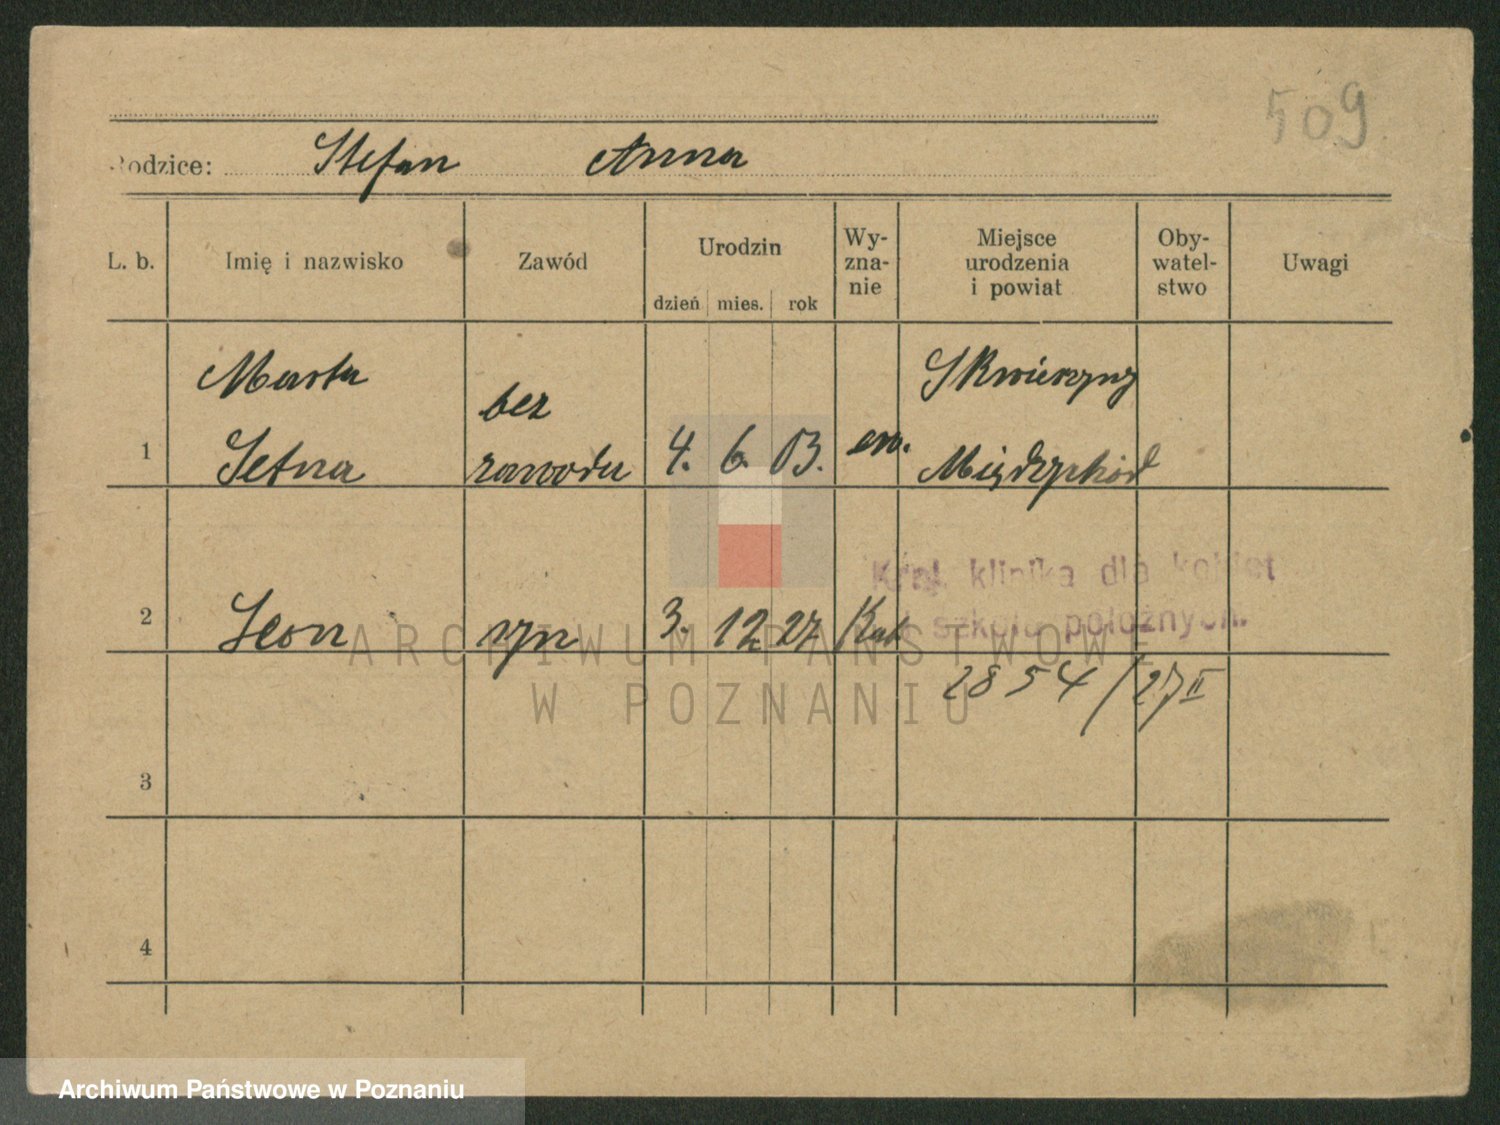 509
Rodzice: Stefan Anna
L. b. Imię i nazwisko Zawód Urodzin dzień mies. rok Wy-zna-nie Miejsce urodzenia i powiat Oby-watel-stwo Uwagi
Marta bez Skwierzyny
1 Setna zawodu 4. 6. 03. ew. Międzychód
Kraj. klinika dla kobiet
i szkoła położnych.
2 Leon syn 3. 12 27 Kat
2854/27 II
3
4
ARCHIWUM PAŃSTWOWE
W POZNANIU
Archiwum Państwowe w Poznaniu